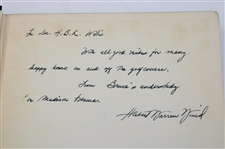 To Dr. H.B.K. Willis
With all good wishes for many
happy hours on and off the golf course.
from
on Madison
Herbert Warren Wind